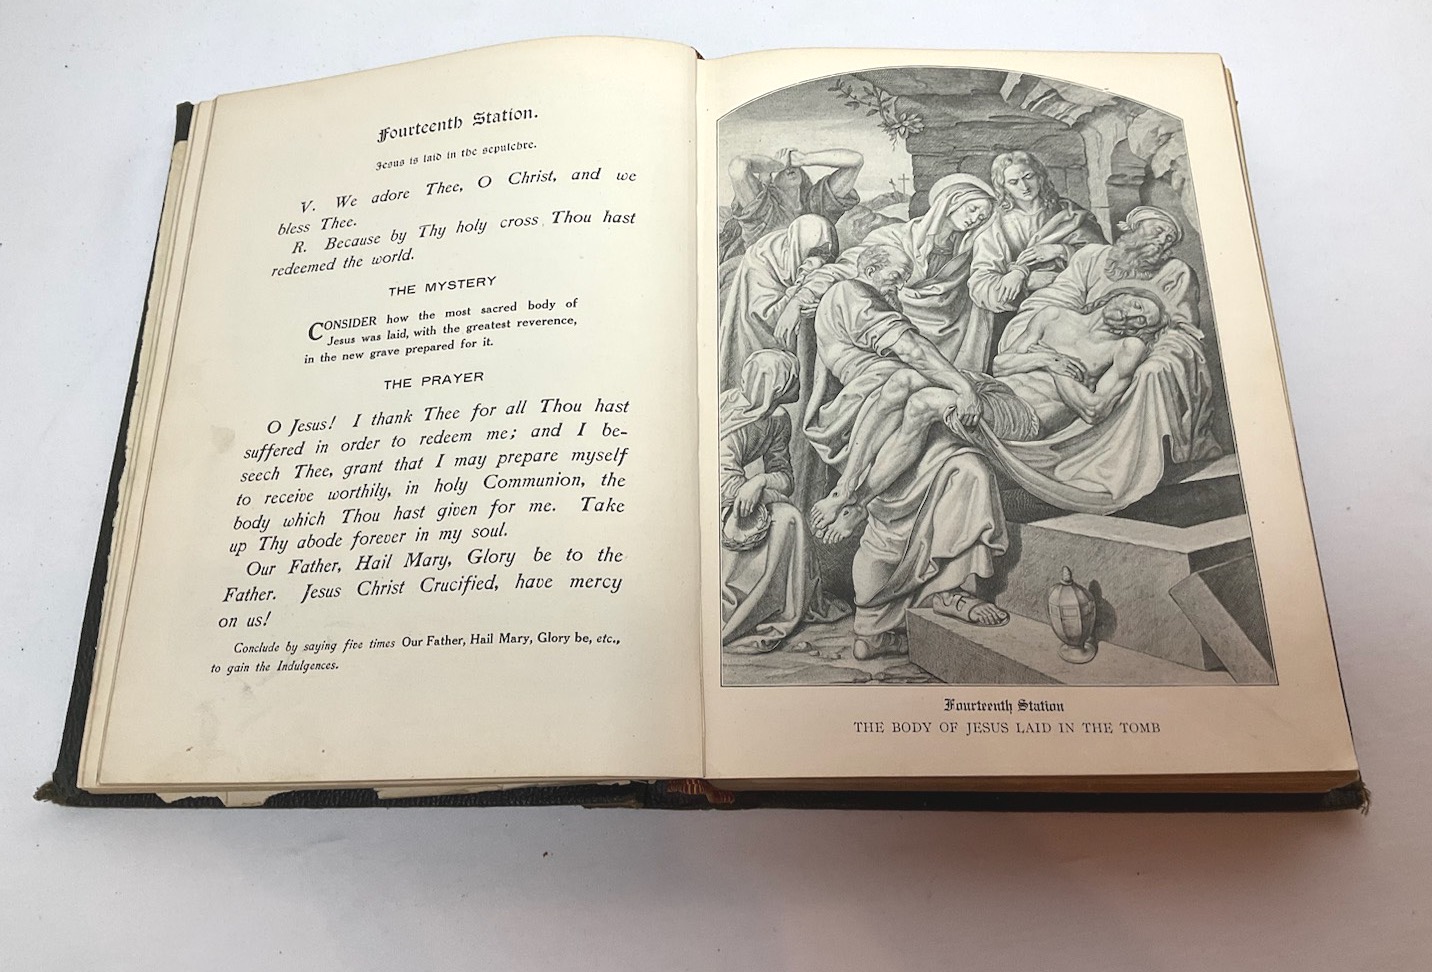 Fourteenth Station.
Jesus is laid in the sepulchre.
V. We adore Thee, O Christ, and we
bless Thee.
R. Because by Thy holy cross Thou hast
redeemed the world.
THE MYSTERY
CONSIDER how the most sacred body of
Jesus was laid, with the greatest reverence,
in the new grave prepared for it.
THE PRAYER
O Jesus! I thank Thee for all Thou hast
suffered in order to redeem me; and I be-
seech Thee, grant that I may prepare myself
to receive worthily, in holy Communion, the
body which Thou hast given for me. Take
up Thy abode forever in my soul.
Our Father, Hail Mary, Glory be to the
Father. Jesus Christ Crucified, have mercy
on us!
Conclude by saying five times Our Father, Hail Mary, Glory be, etc.,
to gain the Indulgences.
Fourteenth Station
THE BODY OF JESUS LAID IN THE TOMB